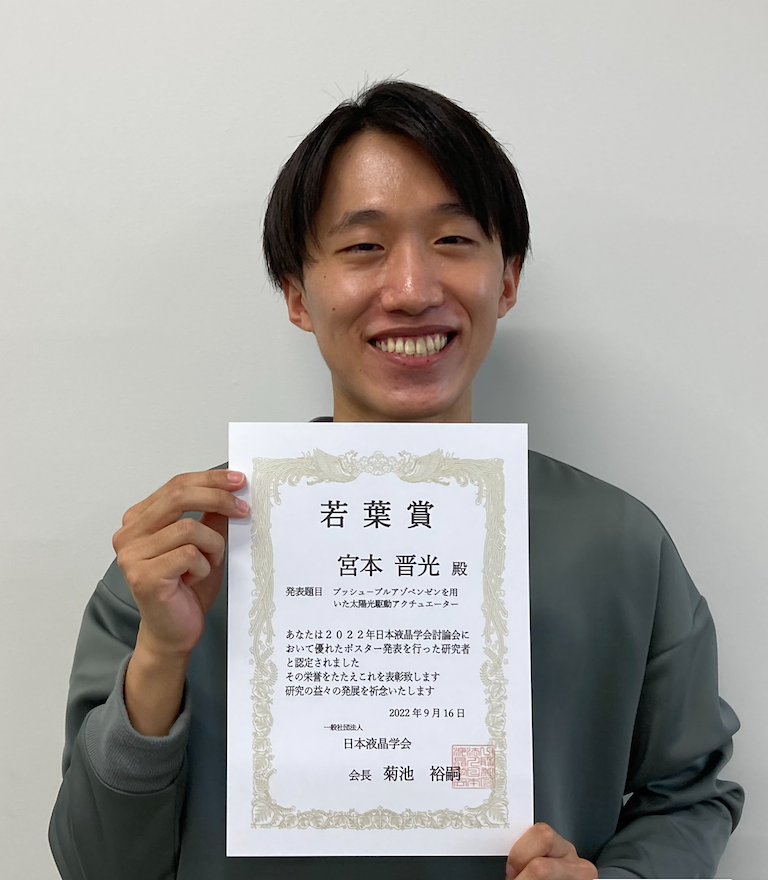 若葉賞
宮本 晋光 殿
発表題目 プッシュープルアゾベンゼンを用
いた太陽光駆動アクチュエーター
あなたは２０２２年日本液晶学会討論会に
おいて優れたポスター発表を行った研究者
と認定されました
その栄誉をたたえこれを表彰致します
研究の益々の発展を祈念いたします
2022年9月16日
一般社団法人
日本液晶学会
会長 菊池 裕嗣